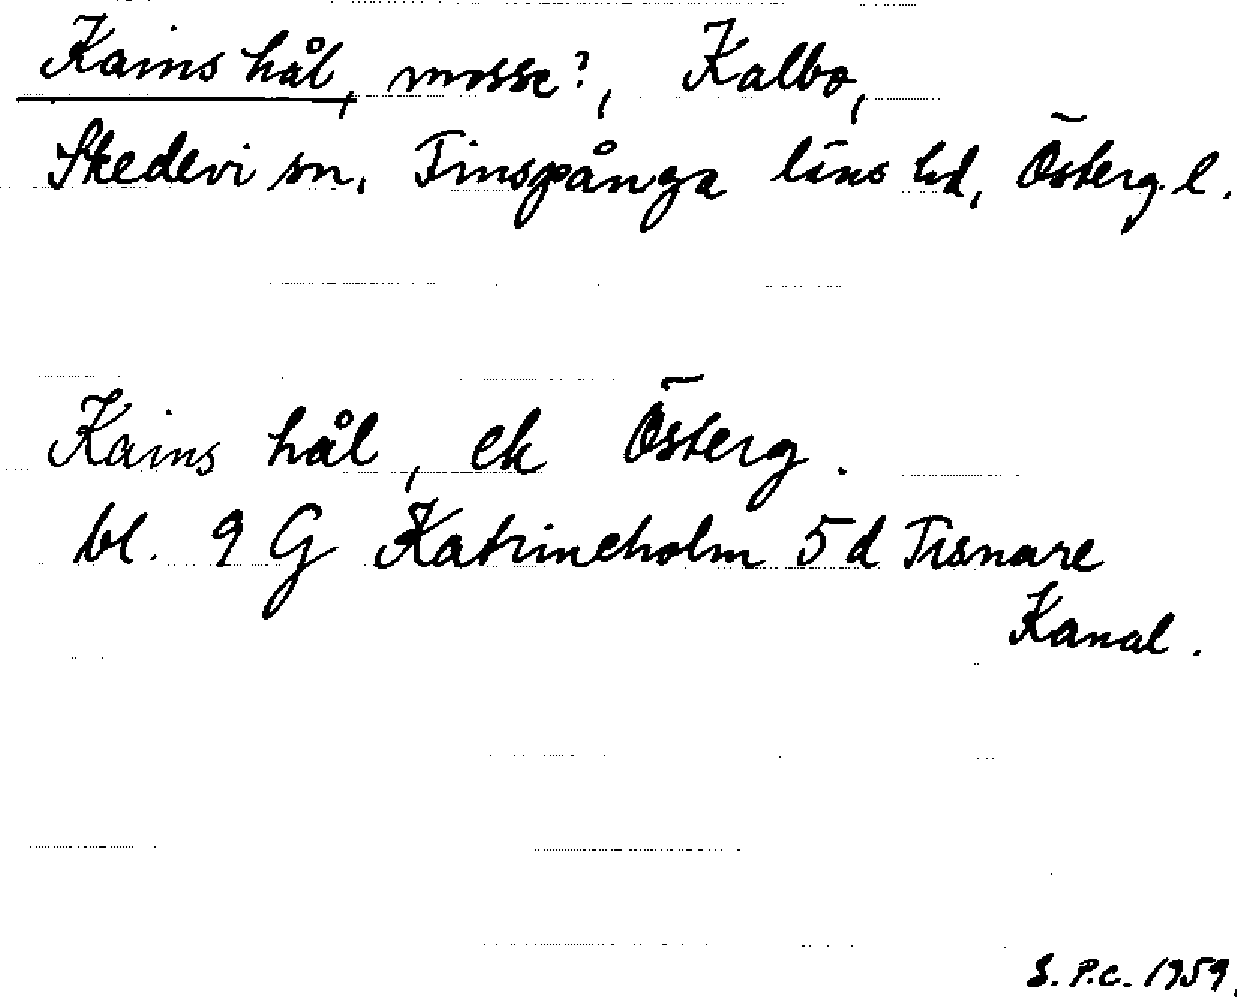 Kains hål, mosse?, Kalbo,
Skedevi sn. Finspånga läns hd, Österg. l.
Kains hål, ek Österg.
bl. 9 G Katrineholm 5 d Tisnare
Kanal.
S. P.C. 1959.